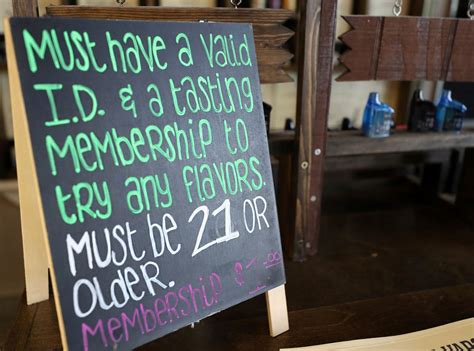 Must have a valid
I.D. & a tasting
Membership to
try any flavors.
Must be 21 or
older.
Membership $1.00